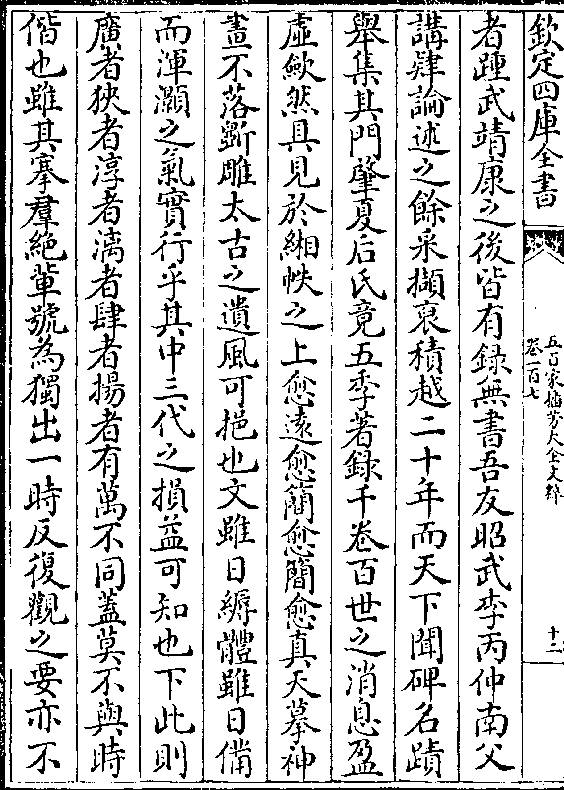 欽定四庫全書
五百家播芳大全文粹
卷一百七
十二
者踵武靖康之後皆有録無書吾友昭武李丙仲南父
講肄論述之餘采擷裒積越二十年而天下聞碑名蹟
舉集其門肇夏后氏竟五季著録千卷百世之消息盈
虛歘然具見於緗帙之上愈遠愈簡愈簡愈真天摹神
畫不落斵雕太古之遺風可挹也文雖日縟體雖日備
而渾灝之氣實行乎其中三代之損益可知也下此則
廣者狹者淳者漓者肆者揚者有萬不同蓋莫不與時
偕也雖其搴羣絶軰號為獨出一時反復觀之要亦不